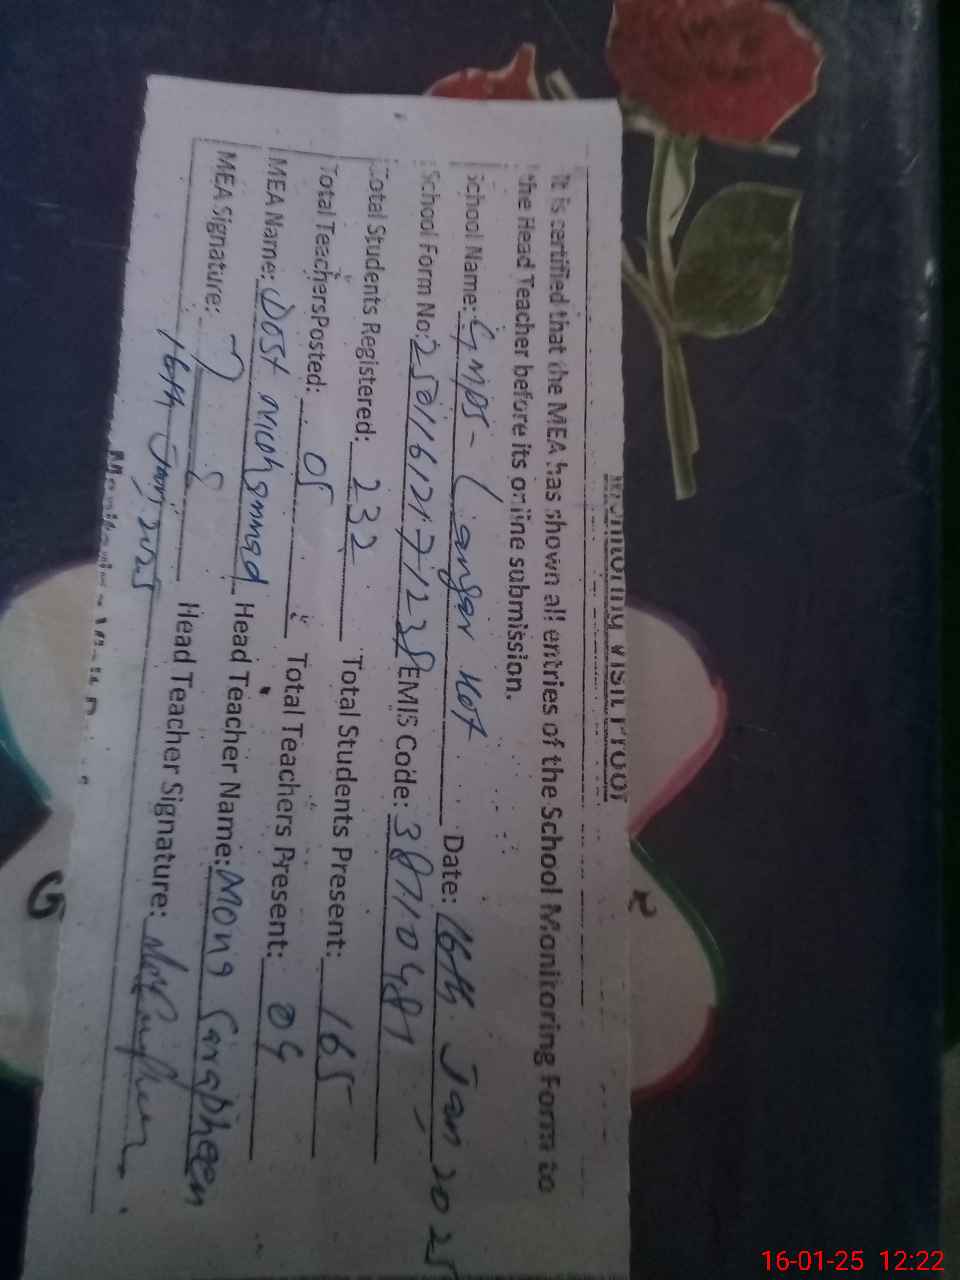 Monitoring Visit Proof
It is certified that the MEA has shown all entries of the School Monitoring Form to
the Head Teacher before its online submission.
School Name: GMPS - Langar Kot Date: 16th Jan, 2025
School Form No: EMIS Code:
Total Students Registered: 232 Total Students Present: 165
Total Teachers Posted: 05 Total Teachers Present: 04
MEA Name: Dost Mohammad Head Teacher Name:
MEA Signature: Head Teacher Signature:
16th Jan, 2025
16-01-25 12:22